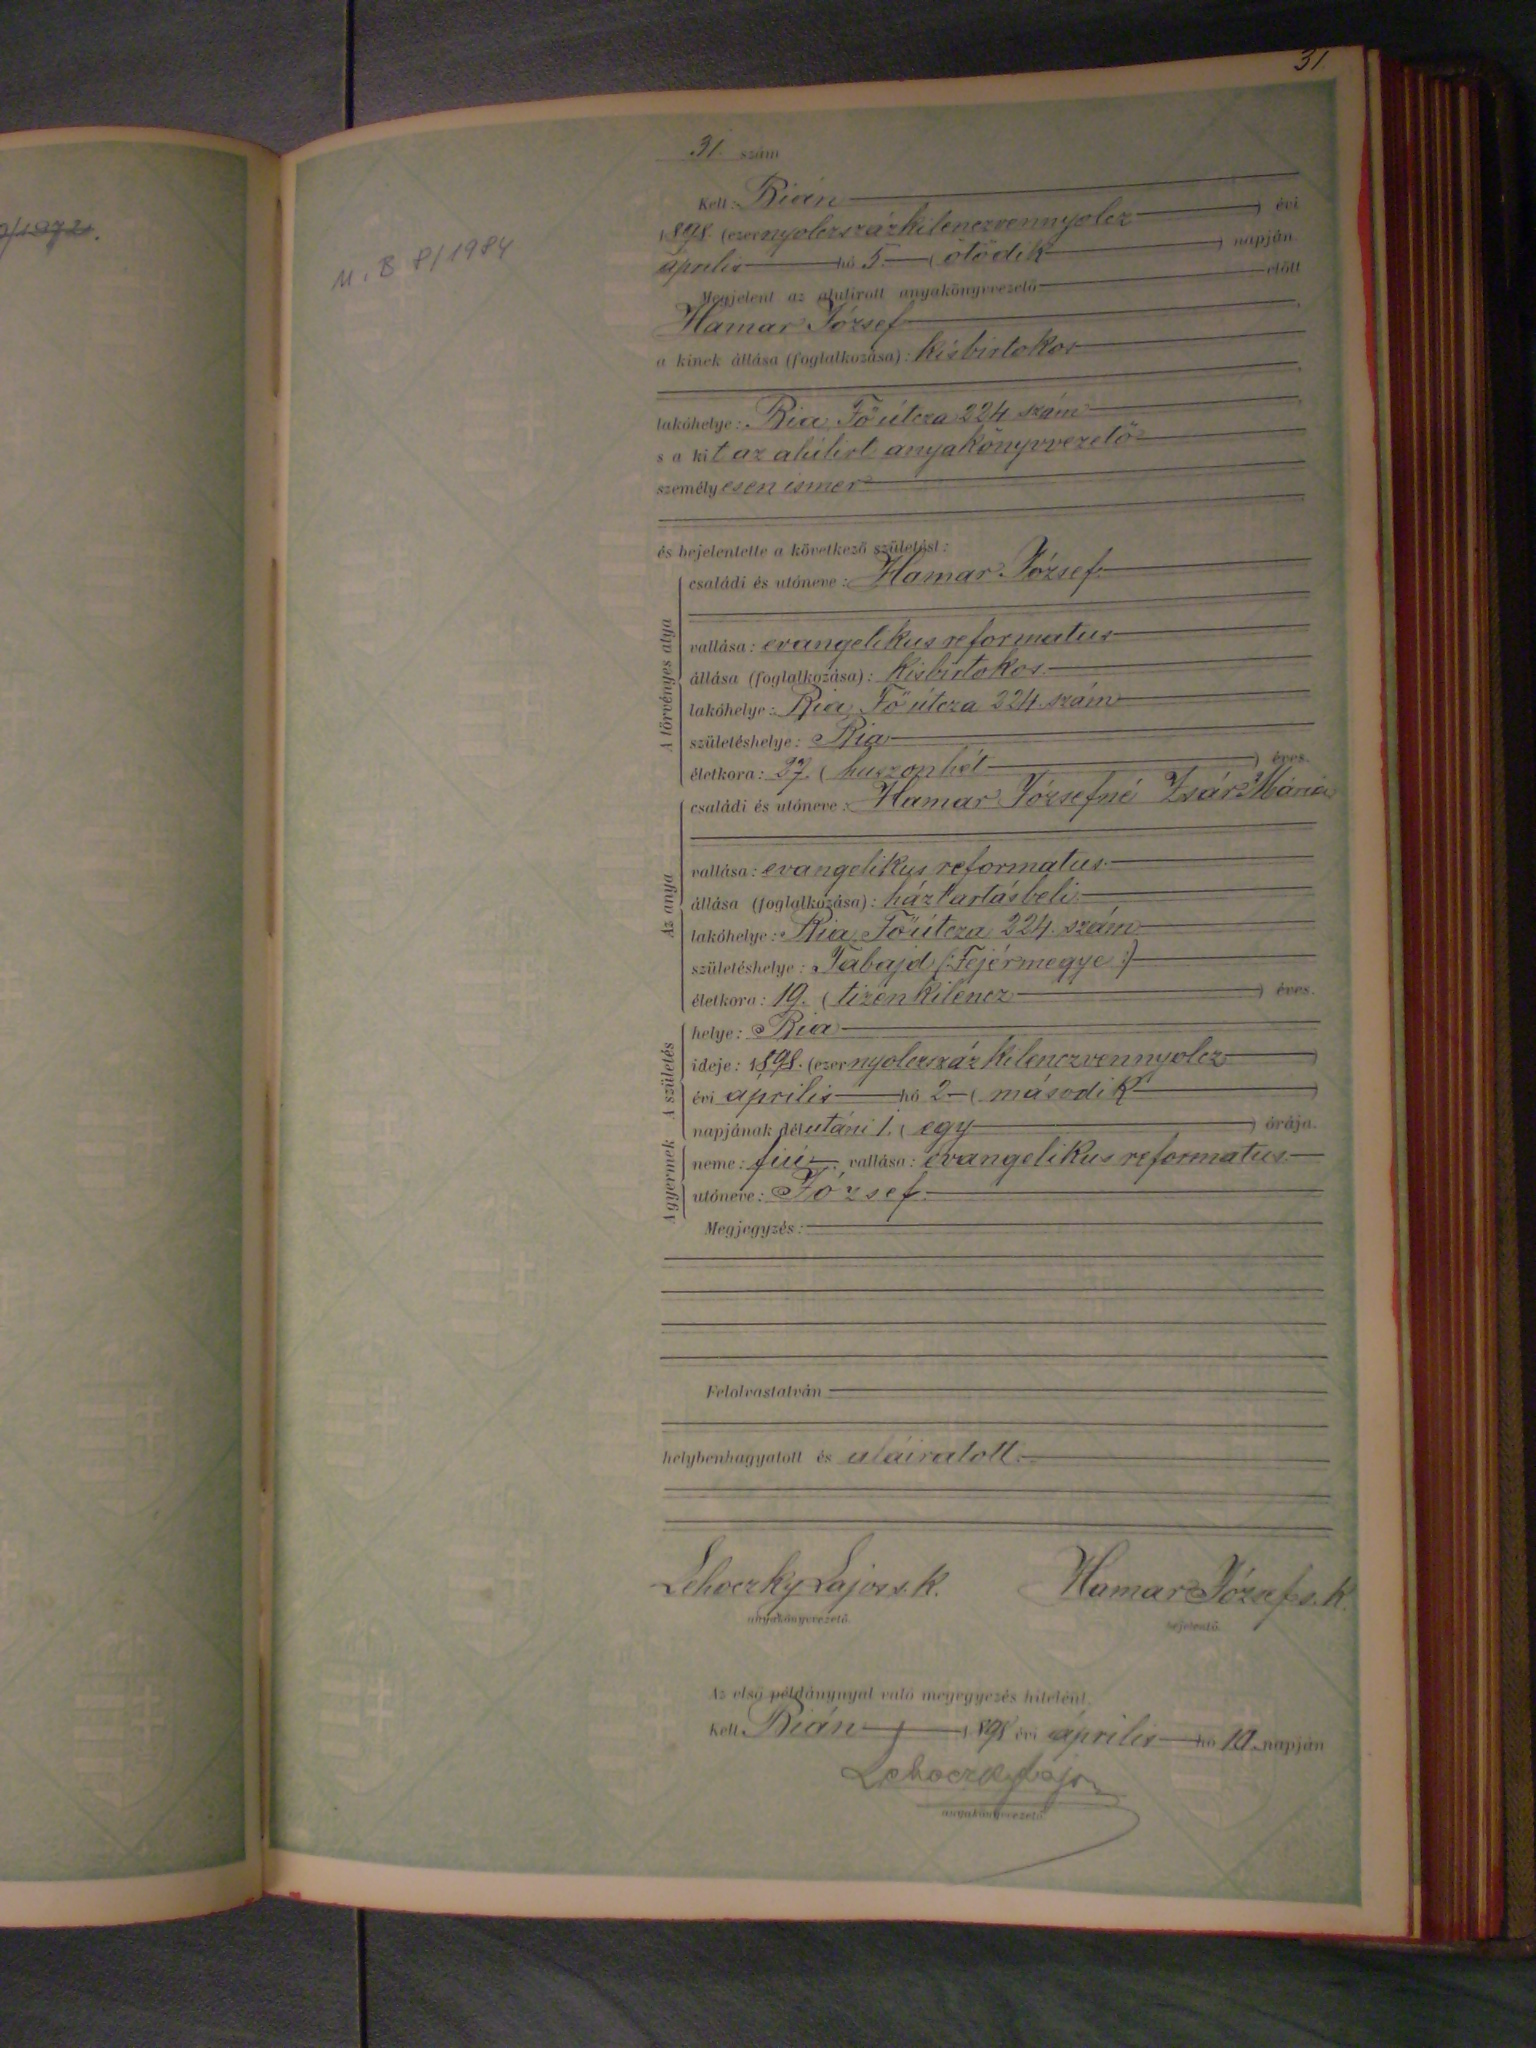 31
M. B 8/1984
31. szám
Kelt: Bián
1898. (ezernyolczszázkilenczvennyolcz) évi
április hó 5. (ötödik) napján
Megjelent az alulirott anyakönyvvezető előtt
Hamar József
a kinek állása (foglalkozása): kisbirtokos
lakóhelye: Bia Főútcza 224. szám
s a kit az alulirt anyakönyvvezető
személyesen ismer
és bejelentette a következő születést:
A törvényes atya
családi és utóneve: Hamar József.
vallása: evangelikus reformatus
állása (foglalkozása): kisbirtokos.
lakóhelye: Bia, Főútcza 224. szám
születéshelye: Bia
életkora: 27. (huszonhét) éves.
Az anya
családi és utóneve: Hamar Józsefné Zsár Mária
vallása: evangelikus reformatus.
állása (foglalkozása): háztartásbeli
lakóhelye: Bia, Főútcza 224. szám
születéshelye: Tabajd (: Fejérmegye :)
életkora: 19. (tizenkilencz) éves.
A születés
helye: Bia
ideje: 1898. (ezernyolczszázkilenczvennyolcz)
évi április hó 2 (második)
napjának délutáni 1. (egy) órája.
A gyermek
neme: fiú; vallása: evangelikus reformatus
utóneve: József.
Megjegyzés:
Felolvastatván
helybenhagyatott és aláiratott.
Lehoczky Lajos s. k. Hamar József s. k.
anyakönyvvezető. bejelentő.
Az első példánynyal való megegyezés hiteléül.
Kelt Bián 1898 évi április hó 10 napján
Lehoczky Lajos
anyakönyvvezető